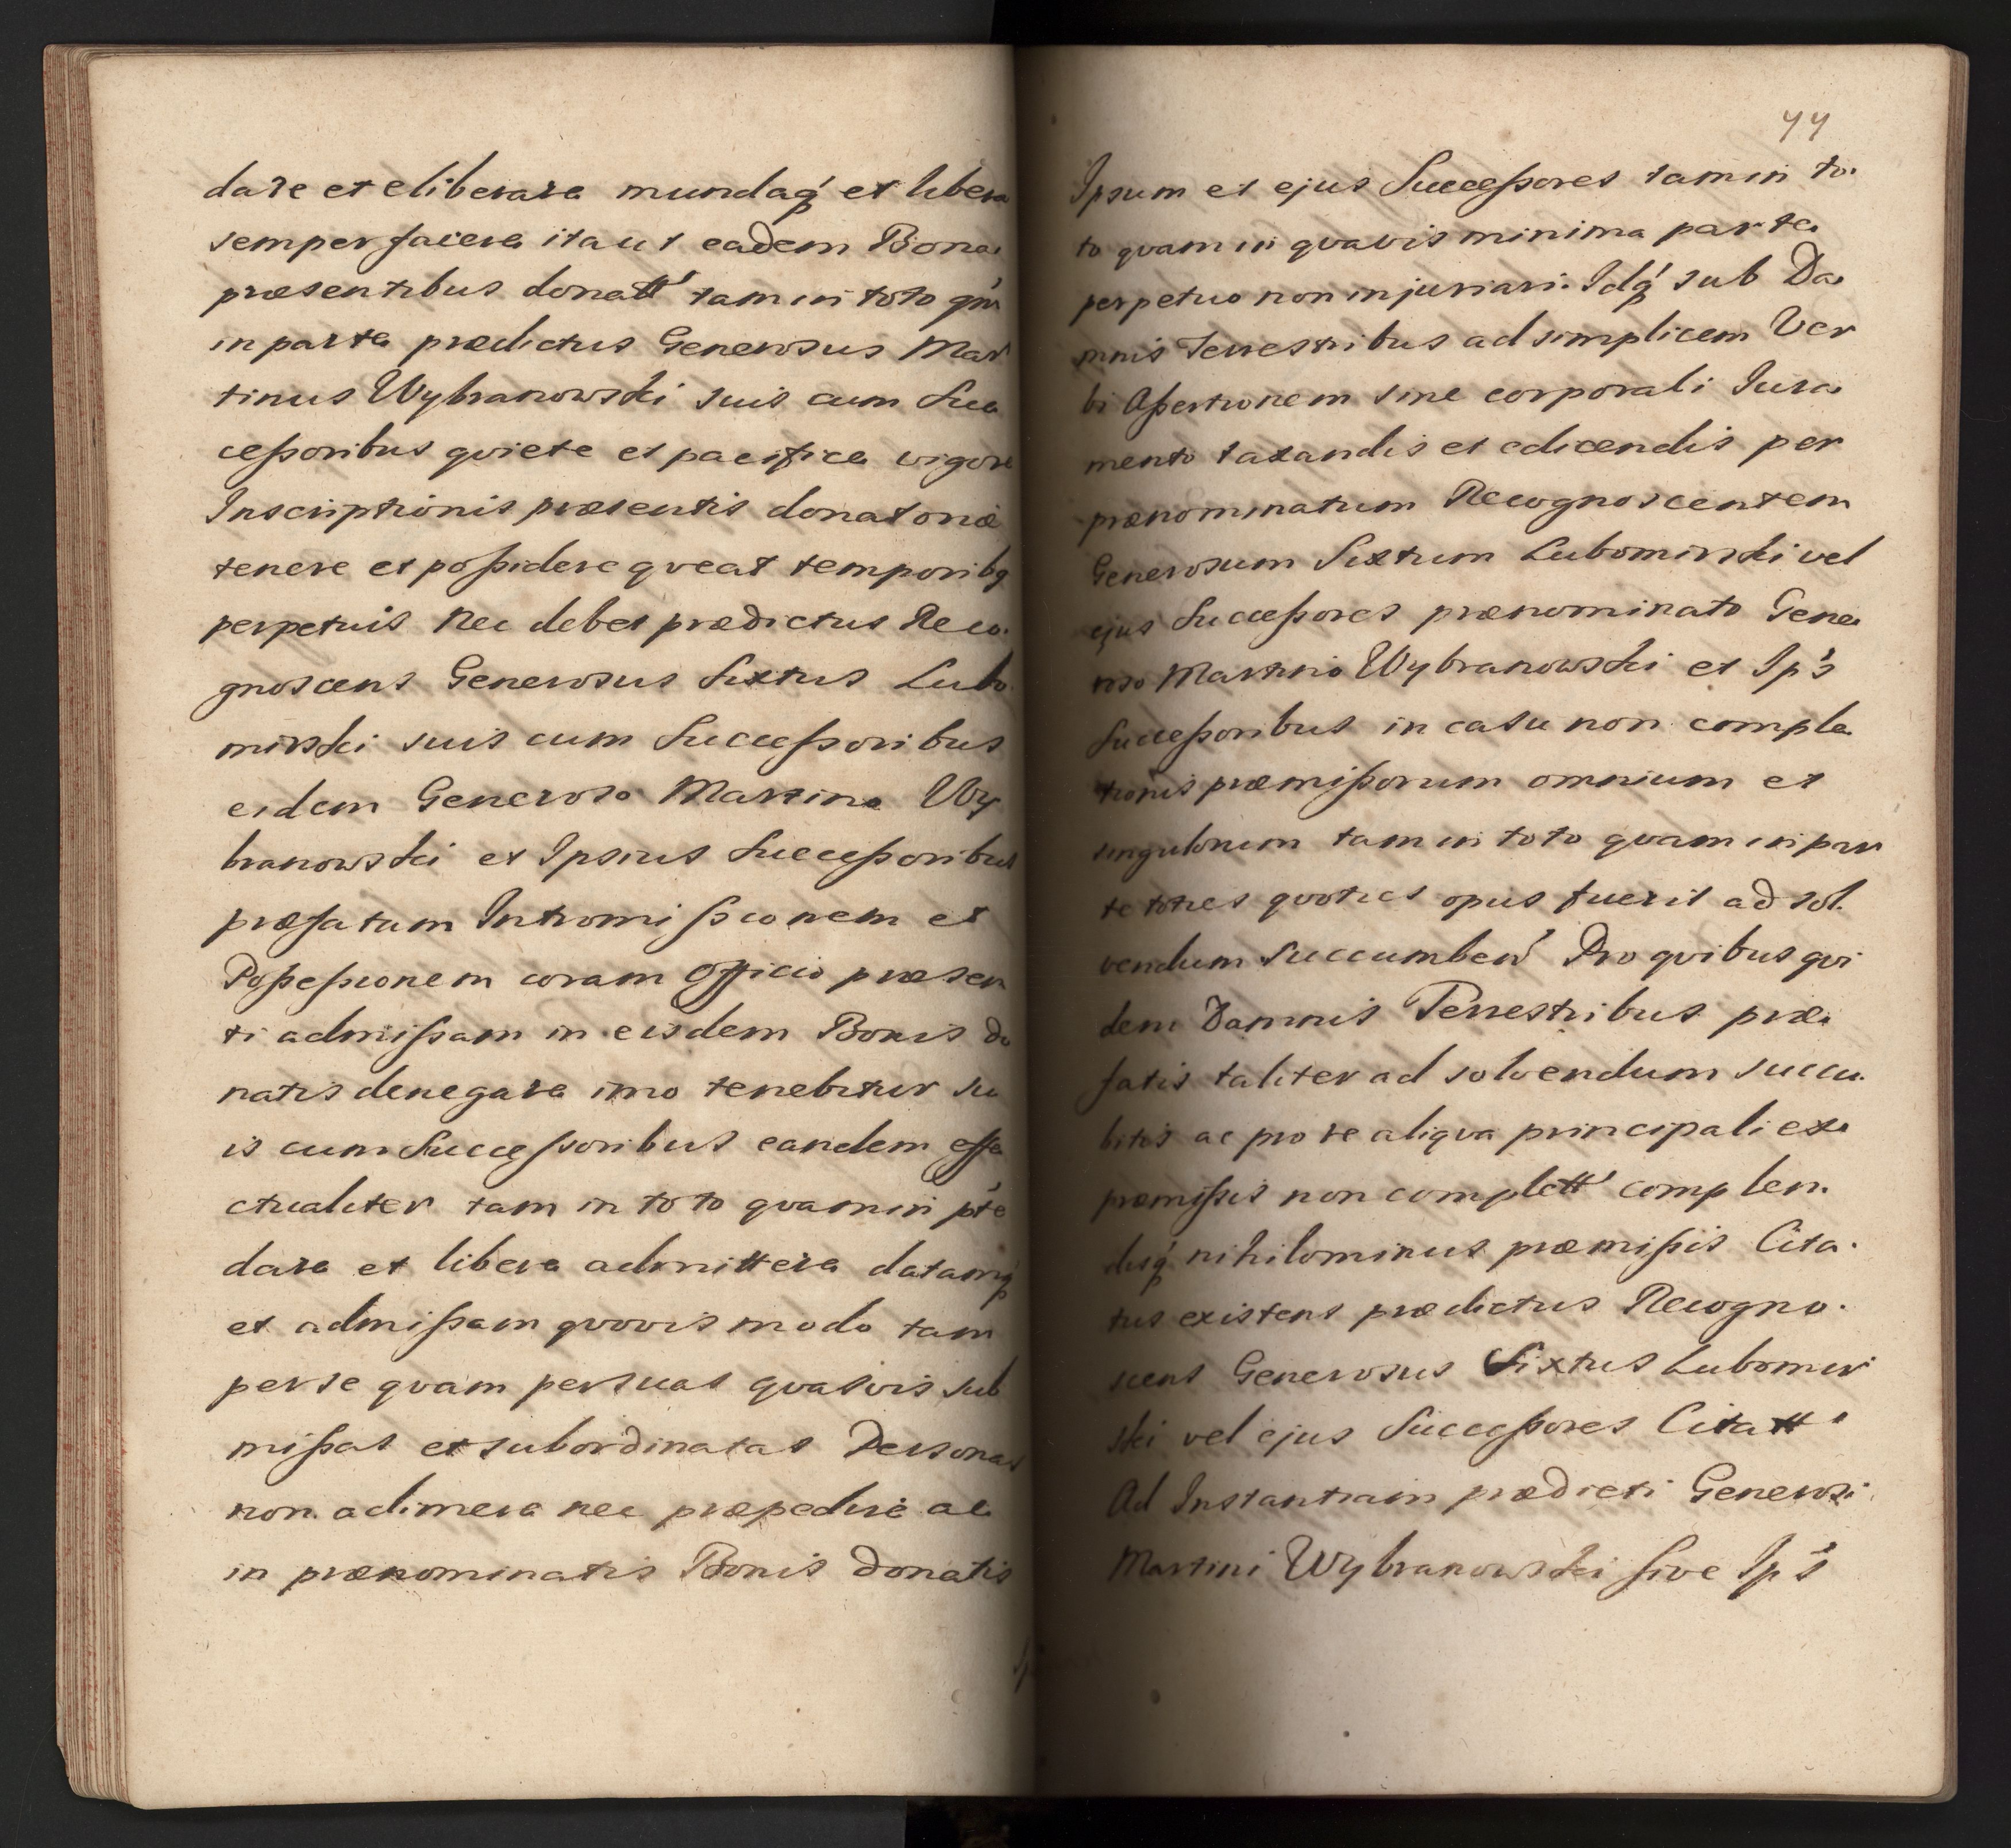 dare et eliberare mundaq́ et libera
semper facere ita ut eadem Bona
præsentibus donatt' tam in toto qm̄
in parte prædictus Generosus Mar
tinus Wybranowski suis cum Suc
ceßoribus qviete et pacifice vigore
Inscriptionis præsentis donatoriæ
tenere et poßidere qveat temporibq
perpetuis Nec debet prædictus Reco
gnoscens Generosus Sixtus Lubo
mirski suis cum Succeßoribus
eidem Generoso Martino Wy
branowski et Ipsius Succeßoribus
præfatam Intromißionem et
Poßeßionem coram Officio præsen
ti admißam in eisdem Bonis do
natis denegare imo tenebitur su
is cum Succeßoribus eandem effe
ctualiter tam in toto qvam in pt́e
dare et libere admittere datamq́
et admißam qvovis modo tam
per se qvam per suas qvasvis sub
mißas et subordinatas Personas
non adimere nec præpedire ac
in prænominatis Bonis donatis
44
Ipsum et ejus Succeßores tam in to
to qvam in qvavis minima parte
perpetuo non injuriari. Idq́ sub Da
mnis Terrestribus ad simplicem Ver
bi Aßertionem sine corporali Jura
mento taxandis et edicendis per
prænominatum Recognoscentem
Generosum Sixtum Lubomirski vel
ejus Succeßores prænominato Gene
roso Martino Wybranowski et Ip's
Succeßoribus in casu non comple
tionis præmißorum omnium et
singulorum tam in toto qvam in par
te toties qvoties opus fuerit ad sol
vendum succumben' Pro qvibus qvi
dem Damnis Terrestribus præ
fatis taliter ad solvendum succu
bitis ac pro re aliqva principali ex
præmißis non complett' complen
disq́ nihilominus præmißis Cita
tus existens prædictus Recogno
scens Generosus Sixtus Lubomir
ski vel ejus Succeßores Citatt'
Ad Instantiam prædicti Generosi
Martini Wybranowski sive Ip's